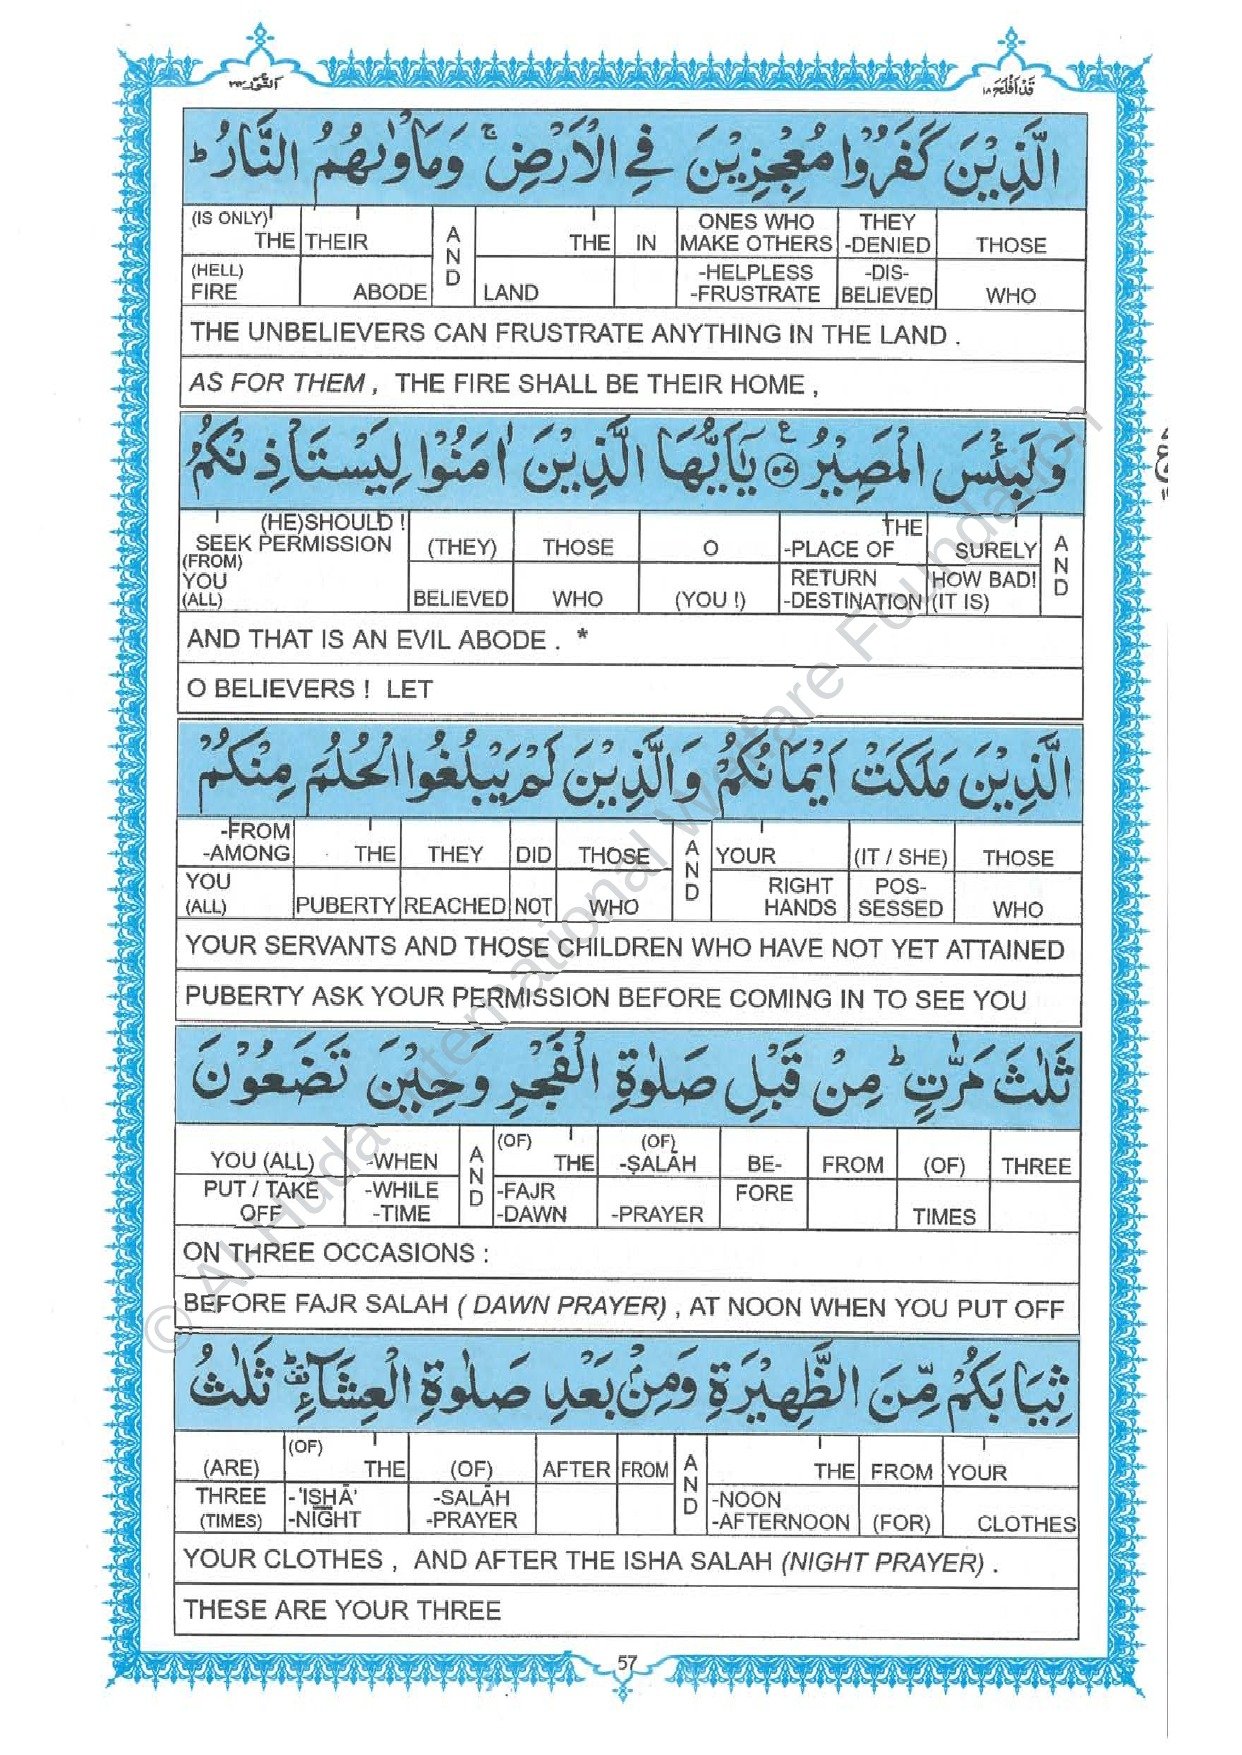 اَلنُّوْر ٢٤
قَدْ اَفْلَحَ ١٨
الَّذِيْنَ كَفَرُوْا مُعْجِزِيْنَ فِي الْاَرْضِ ۚ وَمَاْوٰىهُمُ النَّارُ ؕ
(IS ONLY) THE THEIR A N D THE IN ONES WHO MAKE OTHERS THEY -DENIED THOSE
(HELL) FIRE ABODE LAND -HELPLESS -FRUSTRATE -DIS- BELIEVED WHO
THE UNBELIEVERS CAN FRUSTRATE ANYTHING IN THE LAND .
AS FOR THEM , THE FIRE SHALL BE THEIR HOME ,
وَلَبِئْسَ الْمَصِيْرُ ۧ يٰۤاَيُّهَا الَّذِيْنَ اٰمَنُوْا لِيَسْتَاْذِنْكُمُ
(HE)SHOULD ! SEEK PERMISSION (THEY) THOSE O THE -PLACE OF SURELY A N D
(FROM) YOU (ALL) BELIEVED WHO (YOU !) RETURN -DESTINATION HOW BAD! (IT IS)
AND THAT IS AN EVIL ABODE . *
O BELIEVERS ! LET
الَّذِيْنَ مَلَكَتْ اَيْمَانُكُمْ وَالَّذِيْنَ لَمْ يَبْلُغُوا الْحُلُمَ مِنْكُمْ
-FROM -AMONG THE THEY DID THOSE A N D YOUR (IT / SHE) THOSE
YOU (ALL) PUBERTY REACHED NOT WHO RIGHT HANDS POS- SESSED WHO
YOUR SERVANTS AND THOSE CHILDREN WHO HAVE NOT YET ATTAINED
PUBERTY ASK YOUR PERMISSION BEFORE COMING IN TO SEE YOU
ثَلٰثَ مَرّٰتٍ ؕ مِنْ قَبْلِ صَلٰوةِ الْفَجْرِ وَحِيْنَ تَضَعُوْنَ
YOU (ALL) -WHEN A N D (OF) THE (OF) -ṢALĀH BE- FROM (OF) THREE
PUT / TAKE OFF -WHILE -TIME -FAJR -DAWN -PRAYER FORE TIMES
ON THREE OCCASIONS :
BEFORE FAJR SALAH ( DAWN PRAYER) , AT NOON WHEN YOU PUT OFF
ثِيَابَكُمْ مِّنَ الظَّهِيْرَةِ وَمِنْۢ بَعْدِ صَلٰوةِ الْعِشَآءِ ؕ ثَلٰثُ
(ARE) (OF) THE (OF) AFTER FROM A N D THE FROM YOUR
THREE (TIMES) -'ISHĀ' -NIGHT -SALĀH -PRAYER -NOON -AFTERNOON (FOR) CLOTHES
YOUR CLOTHES , AND AFTER THE ISHA SALAH (NIGHT PRAYER) .
THESE ARE YOUR THREE
57
© Al-Huda International Welfare Foundation